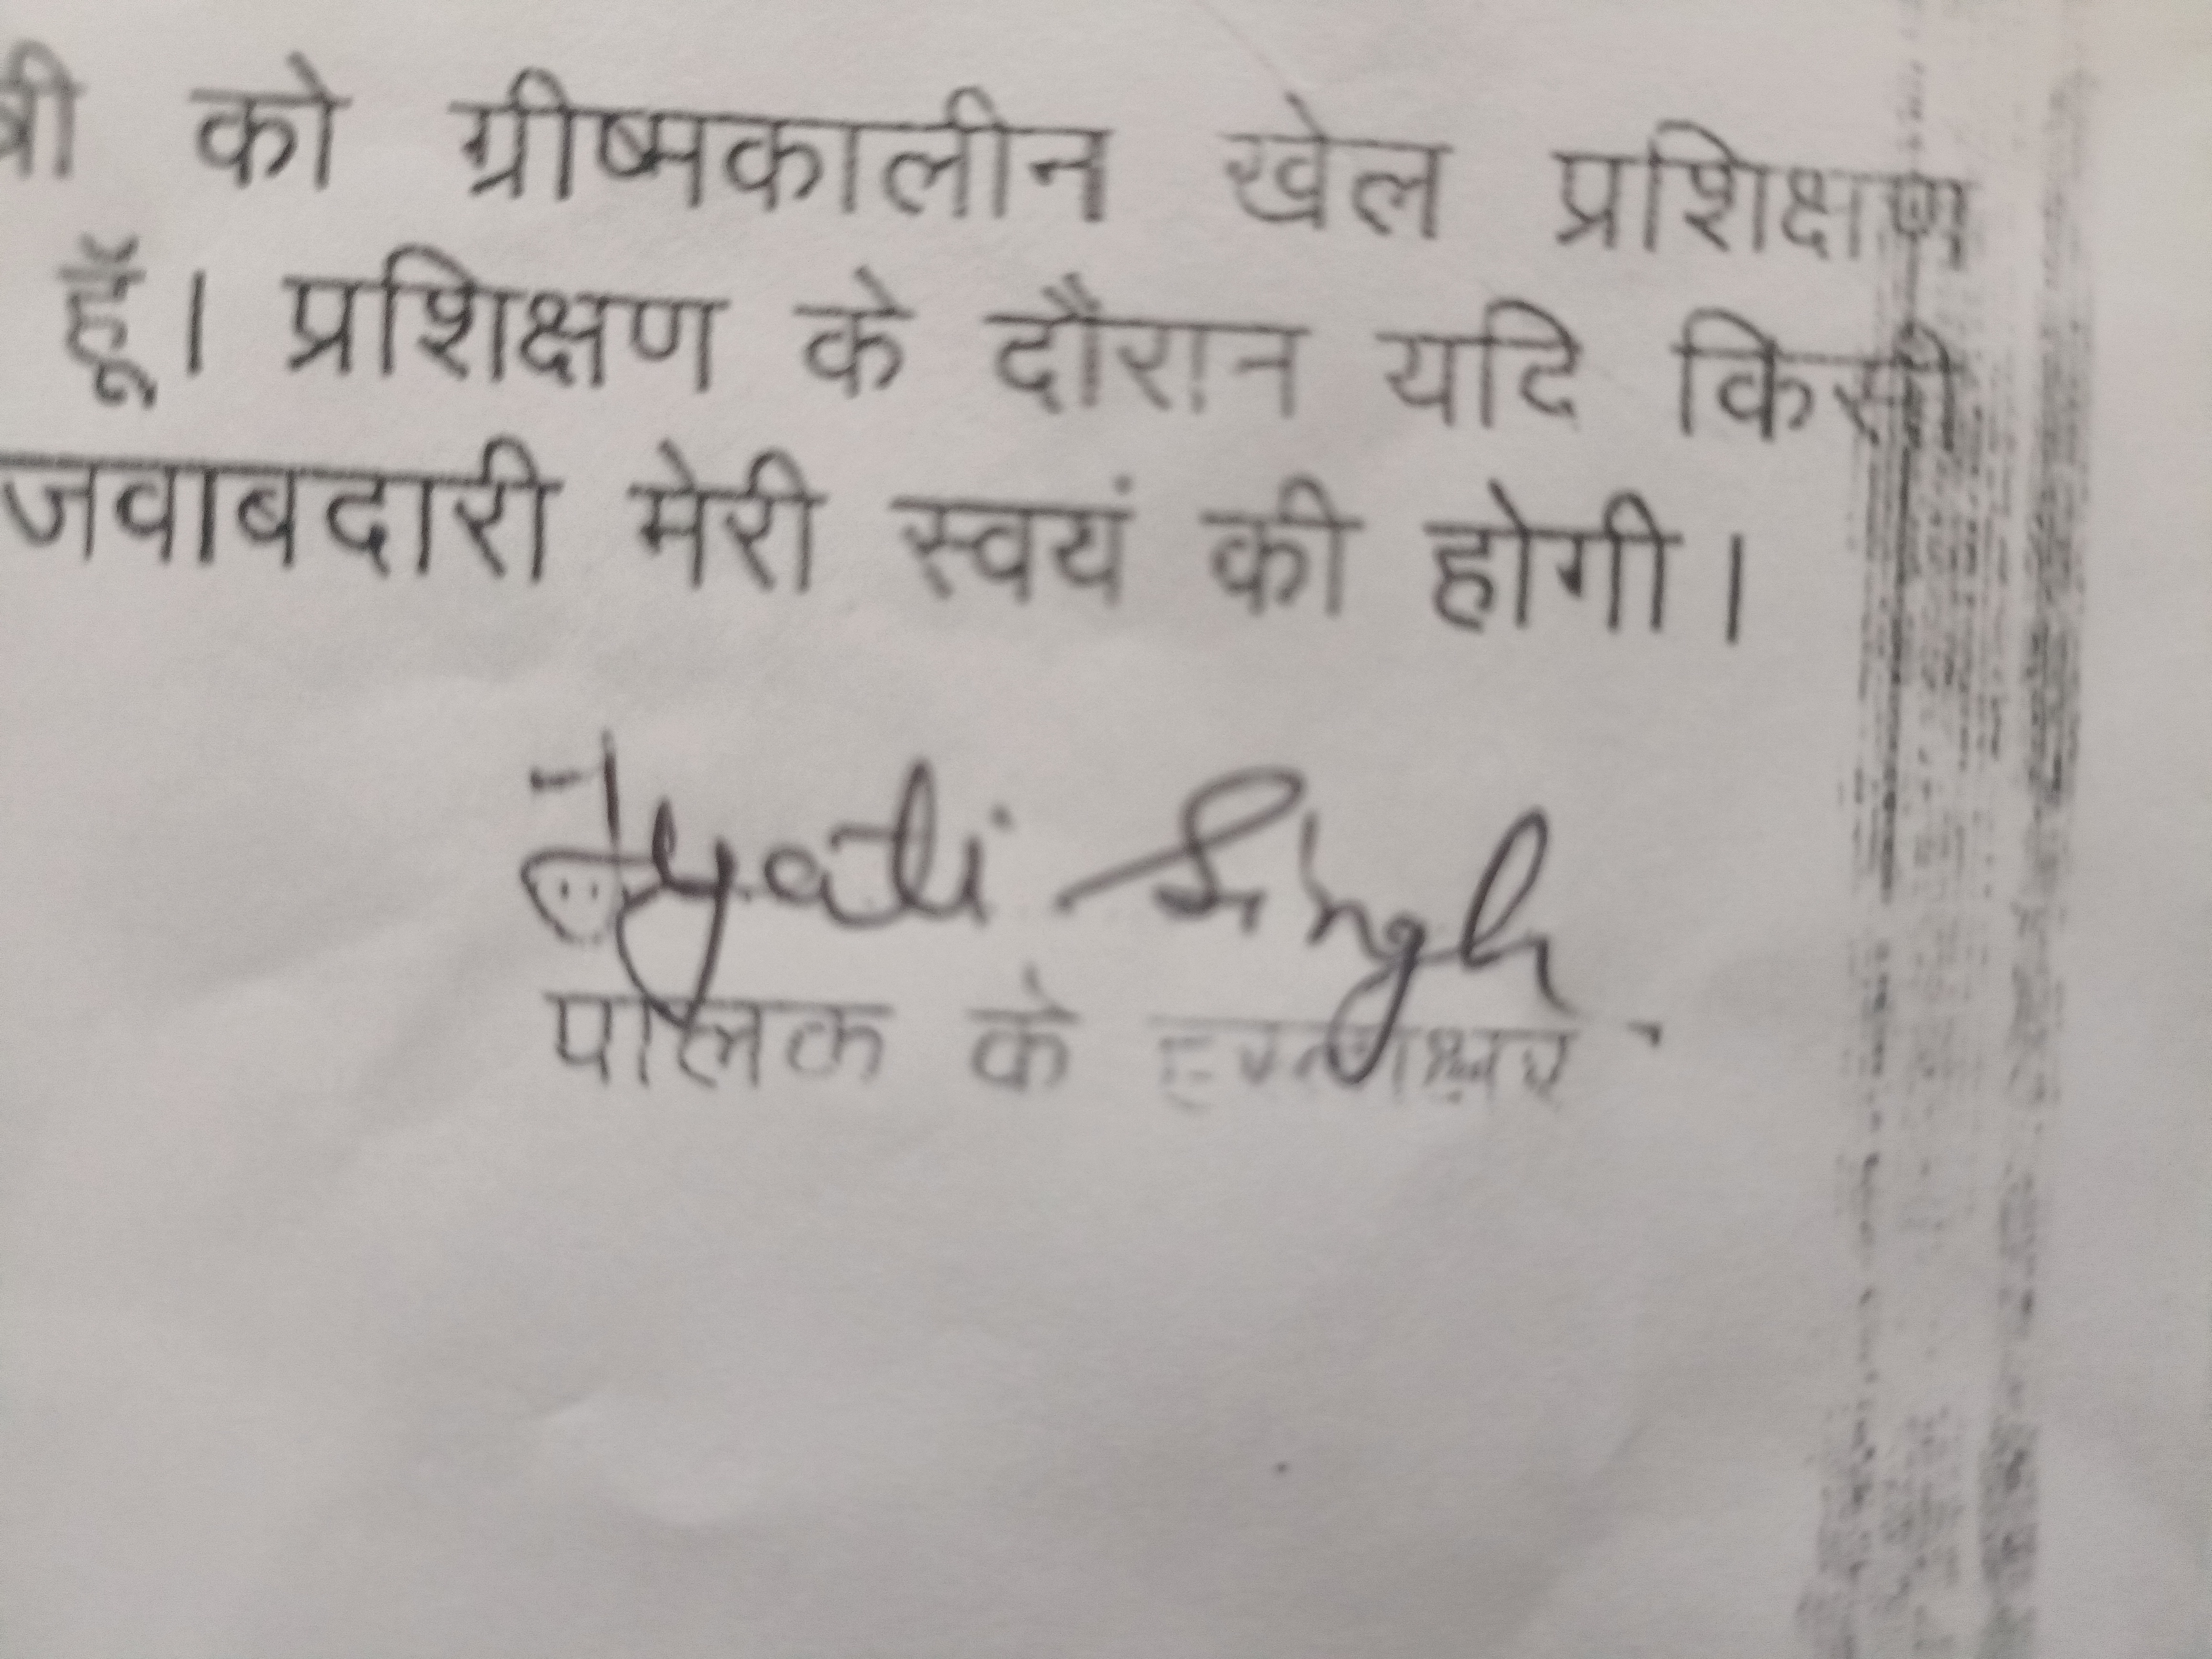 को ग्रीष्मकालीन खेल प्रशिक्षण
हूँ। प्रशिक्षण के दौरान यदि किसी
जवाबदारी मेरी स्वयं की होगी।
Jyoti Singh
पालक के हस्ताक्षर